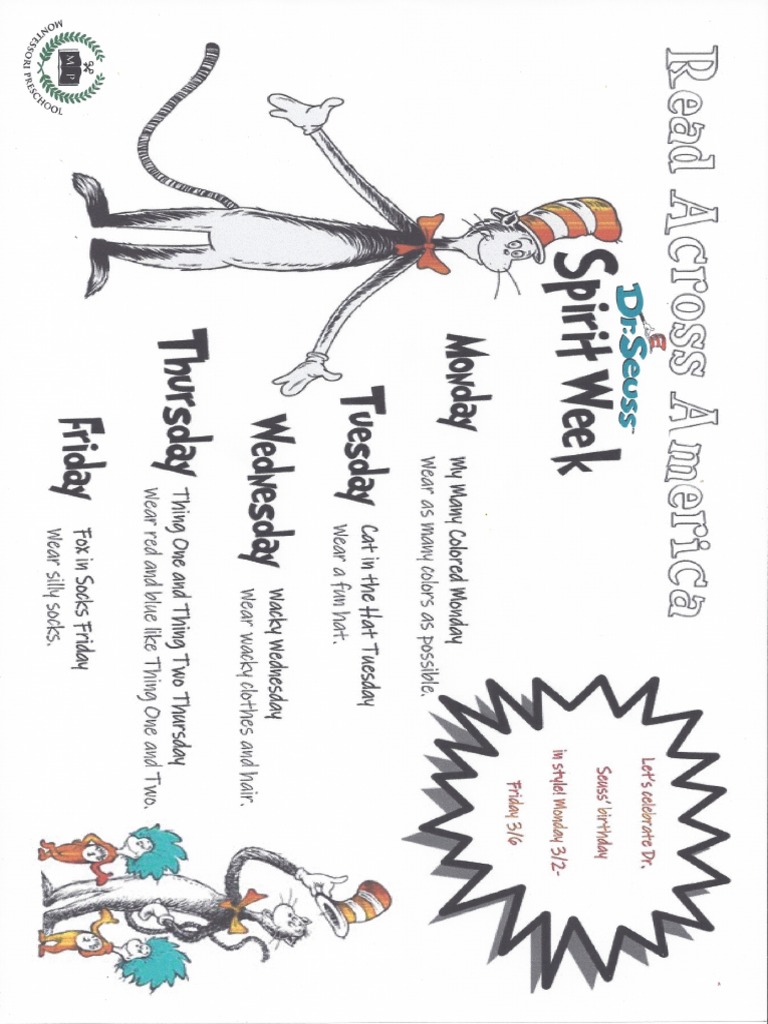 Read Across America
Dr. Seuss
Spirit Week
Let's celebrate Dr.
Seuss' birthday
in style! Monday 3/2-
Friday 3/6
Monday
My Many Colored Monday
Wear as many colors as possible.
Tuesday
Cat in the Hat Tuesday
Wear a fun hat.
Wednesday
Wacky Wednesday
Wear wacky clothes and hair.
Thursday
Thing One and Thing Two Thursday
Wear red and blue like Thing One and Two.
Friday
Fox in Socks Friday
Wear silly socks.
M P
MONTESSORI PRESCHOOL